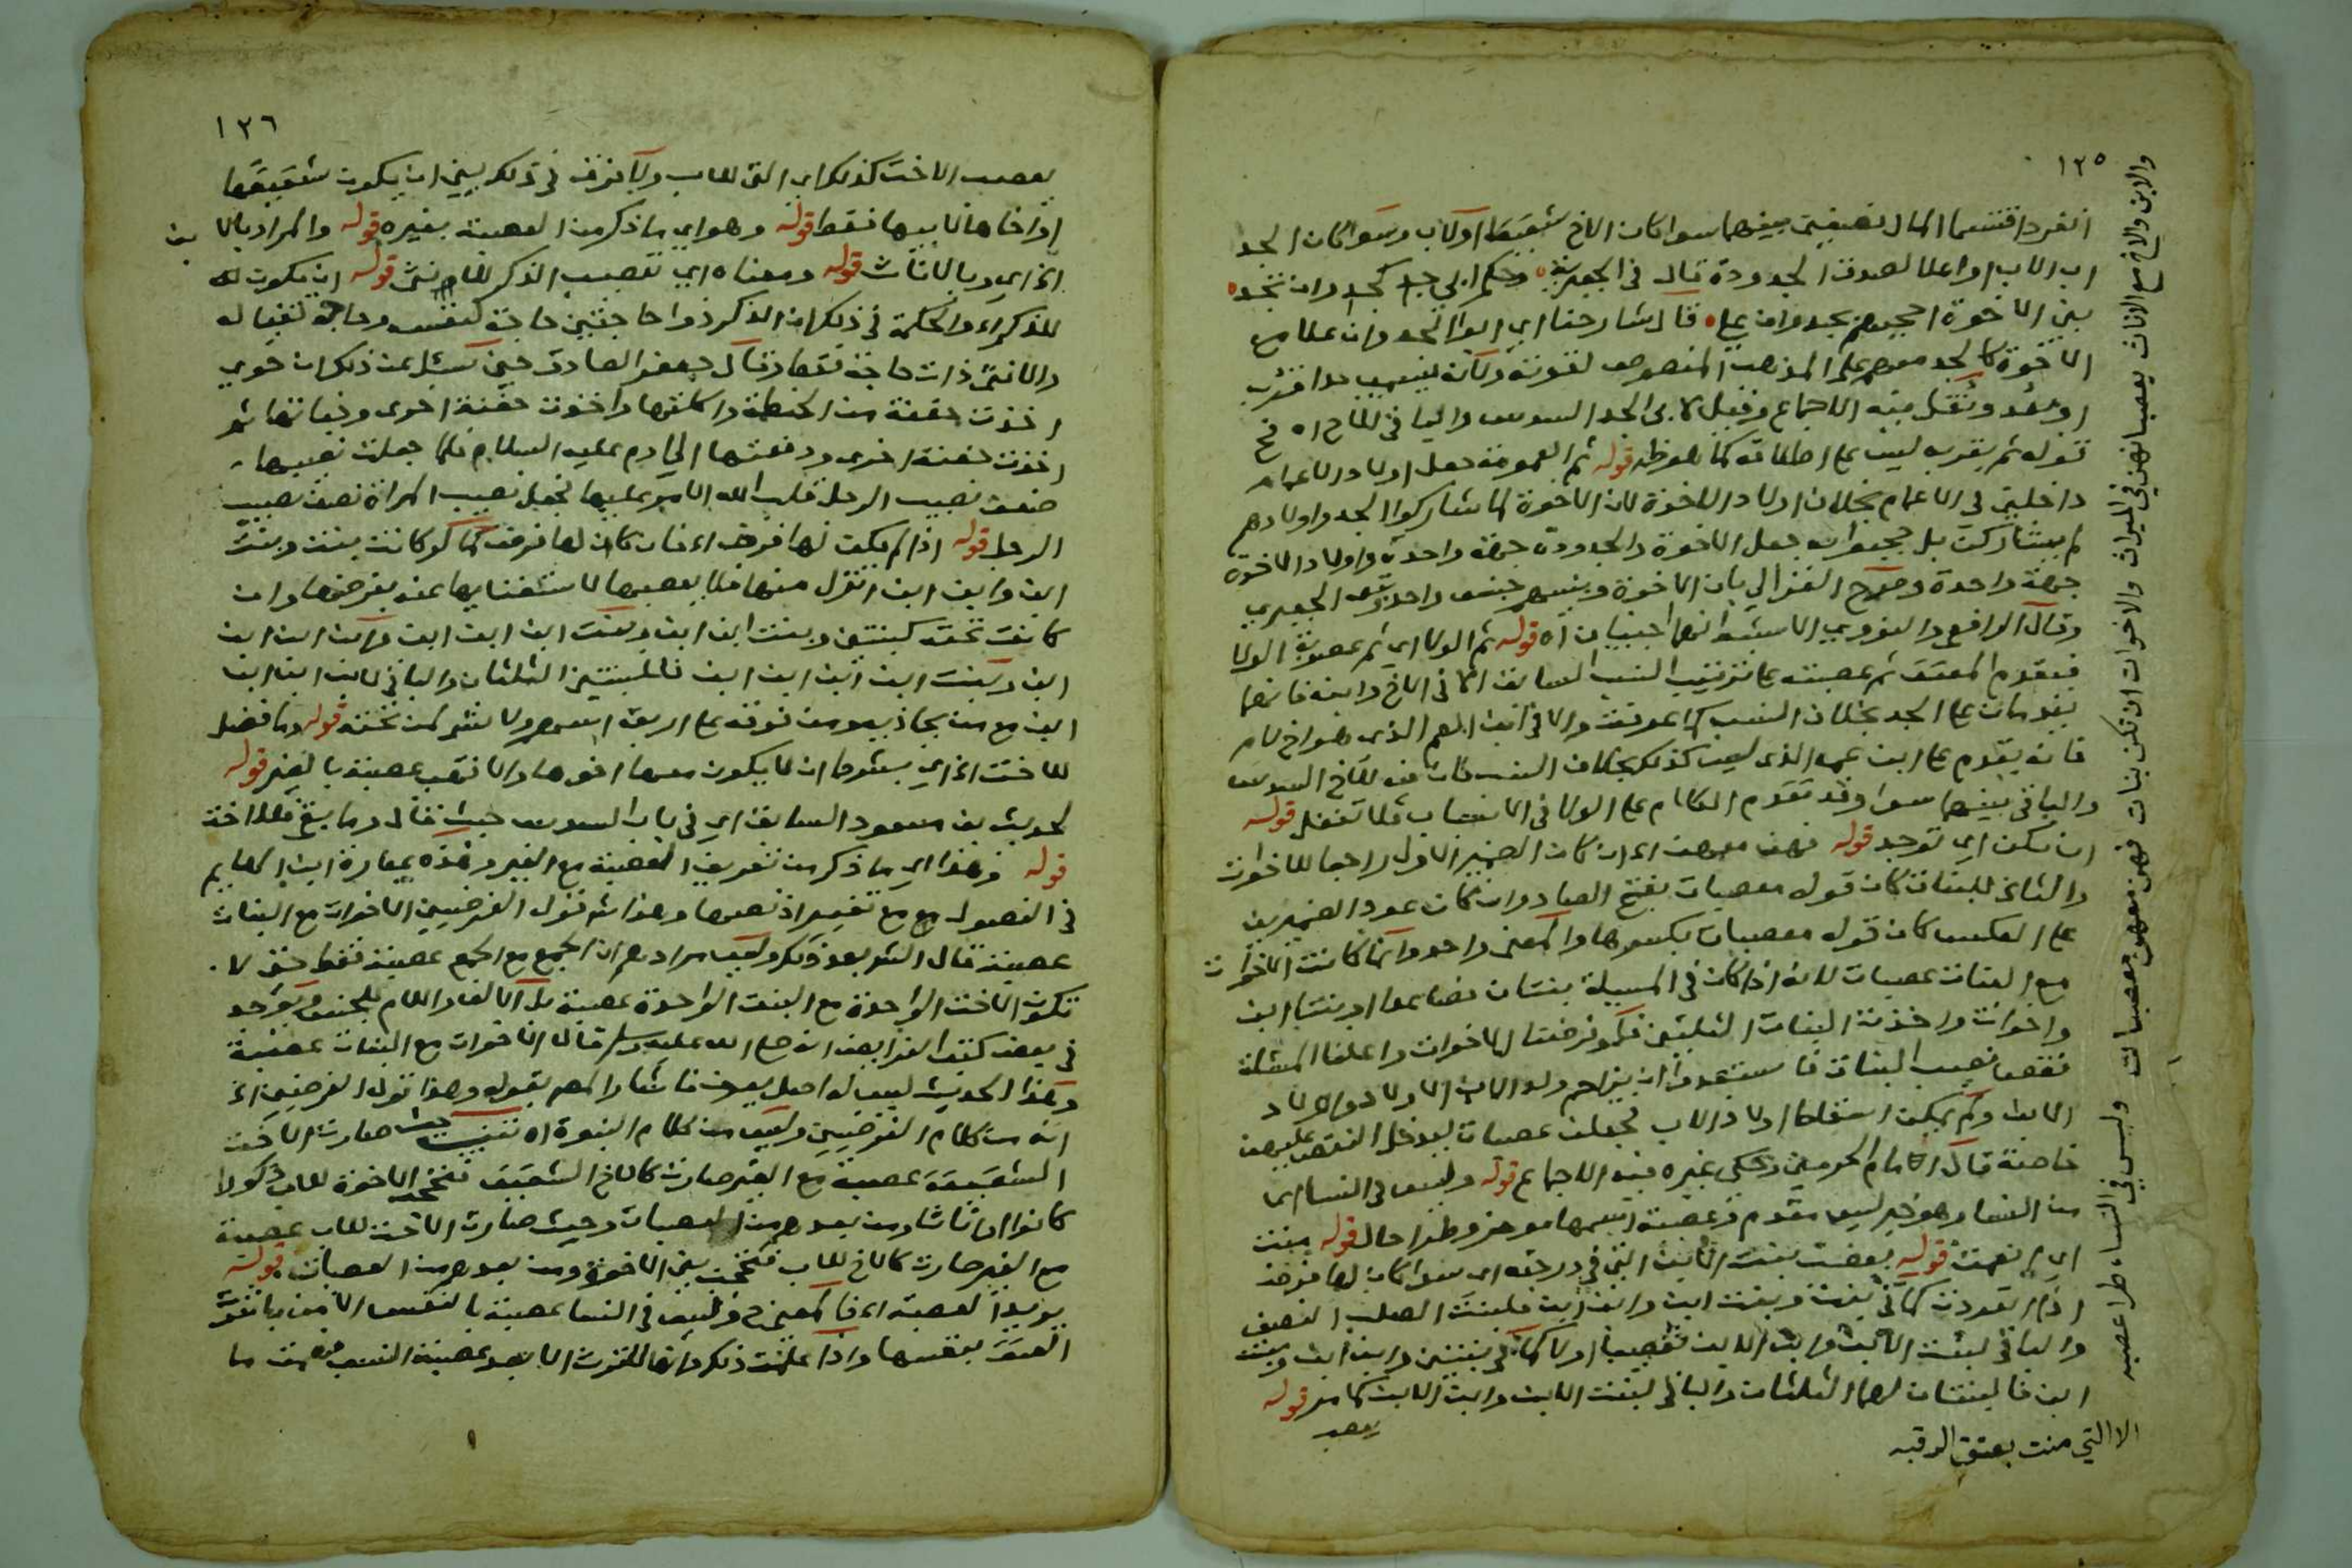 ١٢٥
انفردا اقتسما المال نصفين بينهما سوا كان الاخ شقيقا او لاب وسوا كان الجد
اب الاب او اعلا لصدق الجدودة قال في الجعبرية وحكم ابي جد كجد وان تجد
بني الاخوة احجبهم بجد وان علا قال شارحنا اي ابو الجد وان علا مع
الاخوة كالجد معهم على المذهب المنصوص لقوته ولانه
او بعد ونقل فيه الاجماع وقيل لابي الجد السدس والباقي للاخ اه
قوله ثم العمومة جعل اولاد الاعمام
داخلين في الاعمام بخلاف اولاد الاخوة لان الاخوة لما شاركوا الجد واولادهم
لم يشاركه بل حجبوا به جعل الاخوة والجدودة جهة واحدة واولاد الاخوة
جهة واحدة وصرح الغزالي بان الاخوة وبنيهم جنس واحد الجعبري
وقال الرافعي والنووي الاشبه انهما جنسان اه قوله ثم الولا اي ثم عصوبة الولا
فيقدم المعتق ثم عصبته على ترتيب النسب السابق الا في الاخ وابنه فانهما
يقدمان على الجد بخلاف النسب كما عرفت والا في ابن العم الذي هو اخ لام
فانه يقدم على ابن عم الذي ليس كذلك بخلاف النسب فان فيه للاخ السدس
والباقي بينهما سوا وقد تقدم الكلام على الولا في الاسباب فلا تغفل قوله
ان تكن اي توجد قوله فهن معهن اي ان كان الضمير الاول راجعا للاخوات
والثاني للبنات كان قوله معصبات بفتح الصاد وان كان عود الضميرين
على العكس كان قوله معصبات بكسرها والمعنى واحد وانما كانت الاخوات
مع البنات عصبات لانه اذا كان في المسيلة بنتان فصاعدا او بنتا ابن
واخوات واخذت البنات الثلثين فلو فرضنا للاخوات واعلنا المسئلة
نقصنا نصيب البنات فاستبعدوا ان يزاحم ولد الاب الاولاد واولاد
الابن ولم يمكن اسقاط اولاد الاب فجعلن عصبات ليدخل النقص عليهن
خاصة قال الامام الحرمين وحكى غيره فيه الاجماع قوله وليس في النسا اي
من النسا وهو خبر ليس مقدم وعصبة اسمها موخر وطرا حال قوله بنت
اي انعمت قوله يعصب بنت الابن التي في درجته اي سوا كان لها فرض
اذا انفردت كما في بنت وبنت ابن وابن ابن فللبنت الصلب النصف
والباقي لبنت الابن وابن الابن تعصيبا او لا كما في بنتين وابن ابن وبنت
ابن فالبنتان لهما الثلثان والباقي لبنت الابن وابن الابن كما مر قوله
يعصب
والابن والاخ مع الاناث يعصبانهن في الميراث والاخوات ان تكن بنات فهن معهن معصبات وليس في النساء طرا عصبه
الا التي منت بعتق الرقبه
١٢٦
يعصب الاخت كذلك اي التي للاب ولا فرق في ذلك بين ان يكون شقيقها
او اخاها لابيها فقط قوله وهو اي ما ذكر من العصبة بغيره قوله والمراد بالابن
الخ اي وبالاناث قوله ومعناه اي تعصيب الذكر للانثى قوله ان يكون
للذكر الخ والحكمة في ذلك ان الذكر ذو حاجتين حاجة لنفسه وحاجة لعياله
والانثى ذات حاجة فقط وقال جعفر الصادق حين سئل عن ذلك ان حوي
اخذت حفنة من الحنطة واكلتها واخذت حفنة اخرى وخباتها ثم
اخذت حفنة اخرى ودفعتها الى ادم عليه السلام فلما جعلت نصيبها
ضعف نصيب الرجل قلب الله الامر عليها فجعل نصيب المراة نصف نصيب
الرجل قوله اذا لم يكن لها فرض اي فان كان لها فرض كما لو كانت بنت وبنت
ابن وابن ابن انزل منها فلا يعصبها لاستغنايها عنه بفرضها وان
كانت تحته كبنتين وبنت ابن ابن وبنت ابن ابن ابن وابن ابن ابن
ابن وبنت ابن ابن ابن ابن فللبنتين الثلثان والباقي لابن ابن ابن
ابن مع من يحاذيه ومن فوقه على اربعة اسهم ولا شي لمن تحته قوله وما فضل
للاخت الخ اي بشرط ان لا يكون معها اخوها والا فهي عصبة بالغير قوله
لحديث بن مسعود السابق اي في باب السدس حيث قال وما بقي فللاخت
قوله وهذا اي ما ذكر من تعريف العصبة مع الغير وهذه عبارة ابن الهايم
في الفصول مع تغيير اذ نصها وهذا قول الفرضيين الاخوات مع البنات
عصبة قال الش بعد ذكر وليس مرادهم ان الجمع مع الجمع عصبة فقط حتى لا
تكون الاخت الواحدة مع البنت الواحدة عصبة بل الالف واللام للجنس ويوجد
في بعض كتب الفرايض انه صلى الله عليه وسلم قال الاخوات مع البنات عصبة
وهذا الحديث ليس له اصل يعرف فاشار المص بقوله وهذا قول الفرضيين الخ
انه من كلام الفرضيين وليس من كلام النبوة اه تنبيه حيث صارت الاخت
الشقيقة عصبة مع الغير صارت كالاخ الشقيق فتحجب الاخوة للاب ذكورا
كانوا او اناثا ومن بعدهم من العصبات وحيث صارت الاخت للاب عصبة
مع الغير صارت كالاخ للاب فتحجب بني الاخوة ومن بعدهم من العصبات قوله
يريد العصبة الخ فالمعنى ح وليس في النسا عصبة بالنفس الا من باشرت
العتق بنفسها واذا علمت ذلك